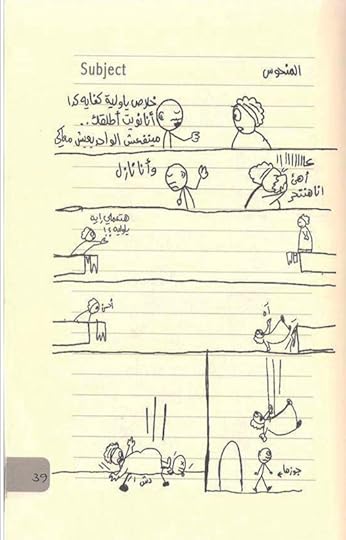 Subject
المنحوس
خلاص ياولية كفايه كدا
أنا نويت أطلقك..
مينفعش الواحد يعيش معاكي
عاااااااا!!
أهئ
انا هنتحر
وأنا نازل
هتعملي إيه
ياوليه ؟!
أحسن
آه
جوزها
دش !
39